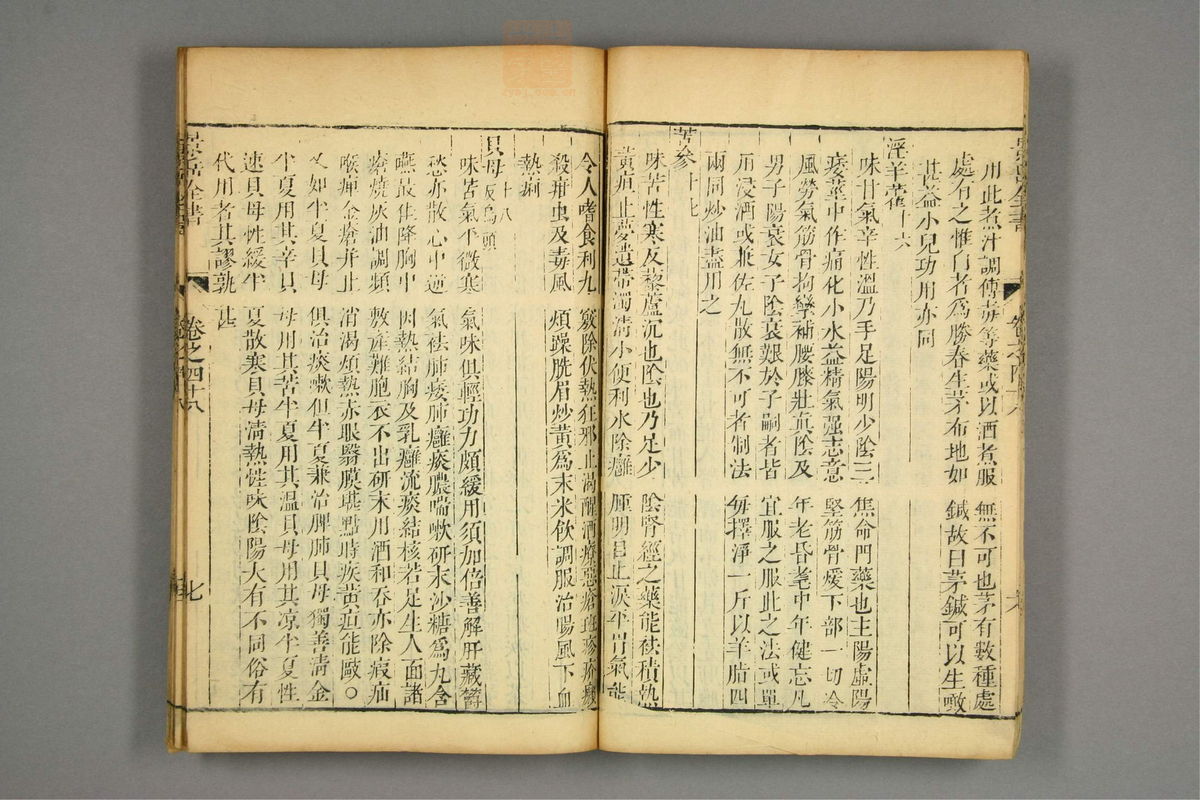 用此煮汁調傳蓰等藥或以酒煮服無不可也茅有數種處
處有之惟白者為勝春生芽布地如鍼故曰茅鍼可以生噉
甚益小兒功用亦同
淫羊藿十六
味甘氣辛性溫乃手足陽明少陰三焦命門藥也主陽虛陽
痿莖中作痛化小水益精氣强志意堅筋骨煖下部一切冷
風勞氣筋骨拘攣補腰膝壯眞陰及年老昏耄中年健忘凡
男子陽衰女子陰衰艱於子嗣者皆宜服之服此之法或單
用浸酒或兼佐丸散無不可者制法每擇淨一斤以羊脂四
兩同炒油盡用之
苦參十七
味苦性寒反藜蘆沉也陰也乃足少陰腎經之藥能祛積熱
黃疸止夢遺帶濁清小便利水除癰腫明目止淚平胃氣能
令人嗜食利九竅除伏熱狂邪止渴醒酒療惡瘡斑疹疥癩
殺疳虫及毒風煩躁脫眉炒黃為末米飲調服治腸風下血
熱痢
貝母反烏頭十八
味苦氣平微寒氣味俱輕功力頗緩用須加倍善解肝藏鬱
愁亦散心中逆氣祛肺痿肺癰痰膿喘嗽研末沙糖為丸含
嚥最佳降胸中因熱結胸及乳癰流痰結核若足生人面諸
瘡燒灰油調頻敷產難胞衣不出研末用酒和吞亦除瘕疝
喉痺金瘡并止消渴煩熱赤眼翳膜堪點時疾黃疸能敺○
又如半夏貝母俱治痰嗽但半夏兼治脾肺貝母獨善清金
半夏用其辛貝母用其苦半夏用其温貝母用其凉半夏性
速貝母性緩半夏散寒貝母清熱性味陰陽大有不同俗有
代用者其謬孰甚
景岳全書
卷之四十八
七